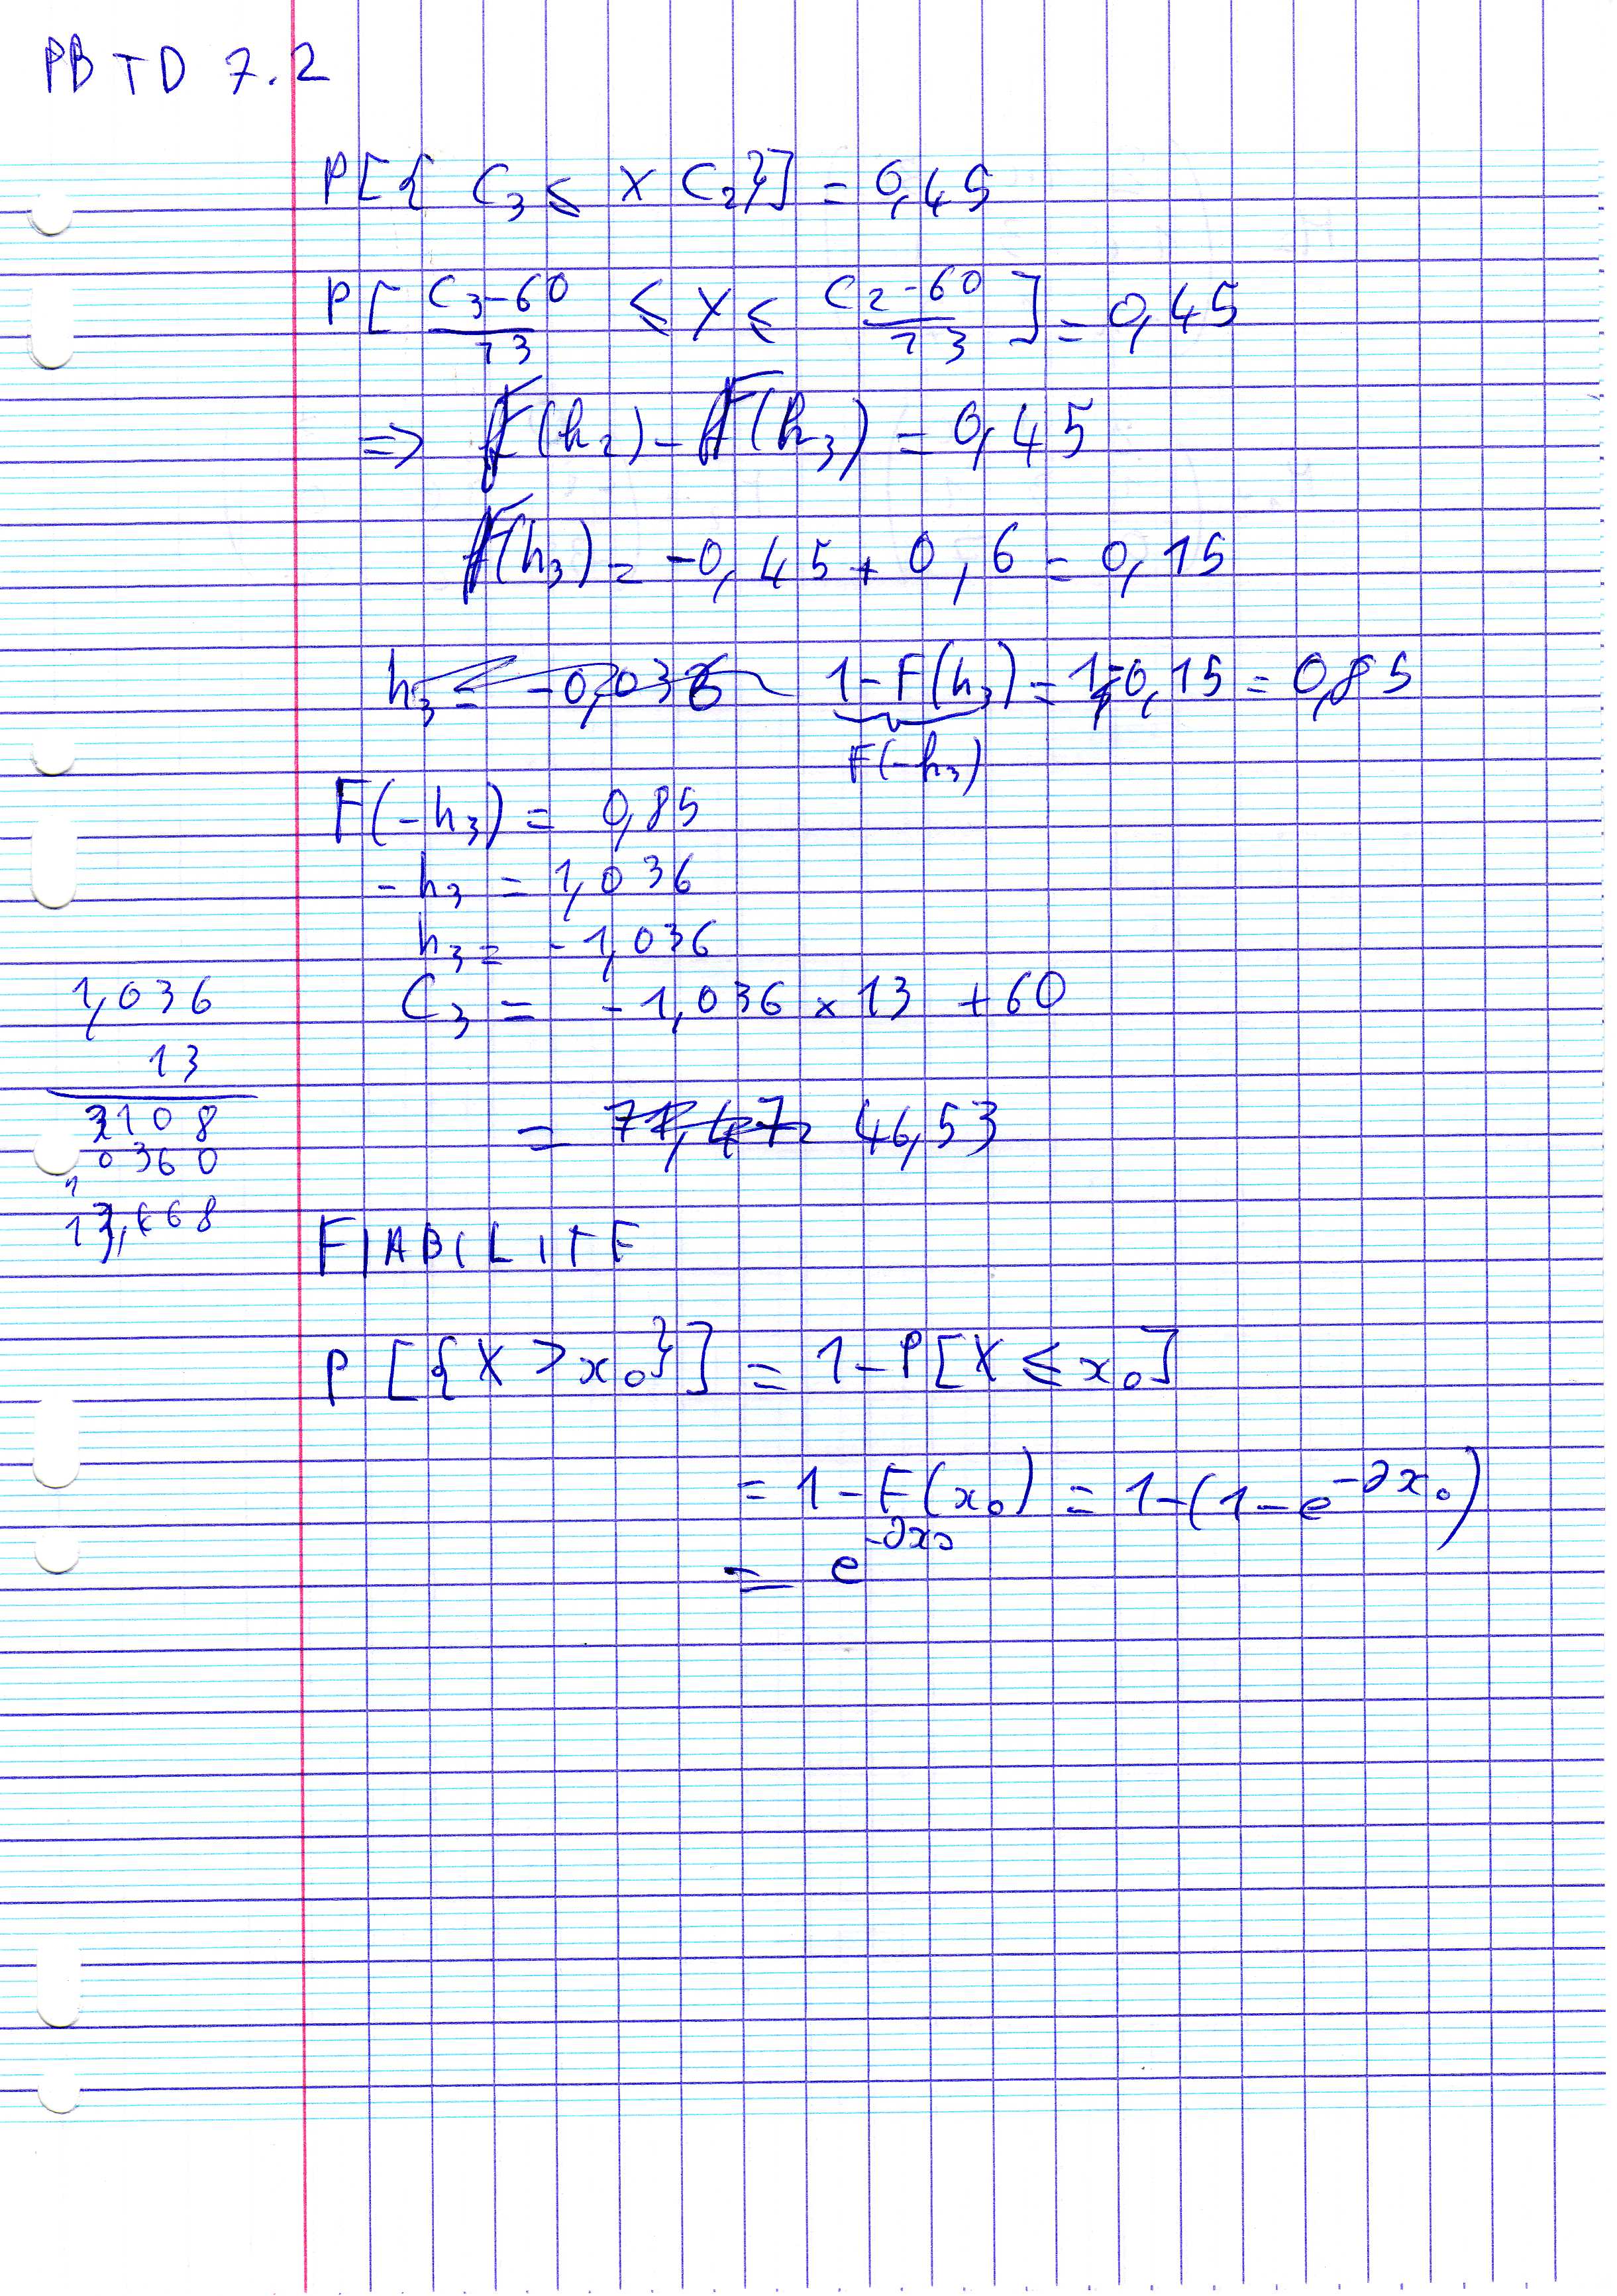 PB TD 7.2
P[{ C₃ ≤ X C₂}] = 0,45
P[ (C₃-60)/13 ≤ Y ≤ (C₂-60)/13 ] = 0,45
=> F(h₂) - F(h₃) = 0,45
F(h₃) = -0,45 + 0,6 = 0,15
h₃ = -0,036 1-F(h₃) = 1-0,15 = 0,85
F(-h₃)
F(-h₃) = 0,85
-h₃ = 1,036
h₃ = -1,036
C₃ = -1,036 × 13 + 60
= 71,47 46,53
1,036
13
3108
10360
13,468
FIABILITE
P[{X > x₀}] = 1-P[X ≤ x₀]
= 1-F(x₀) = 1-(1-e^-∂x₀)
= e^-∂x₀